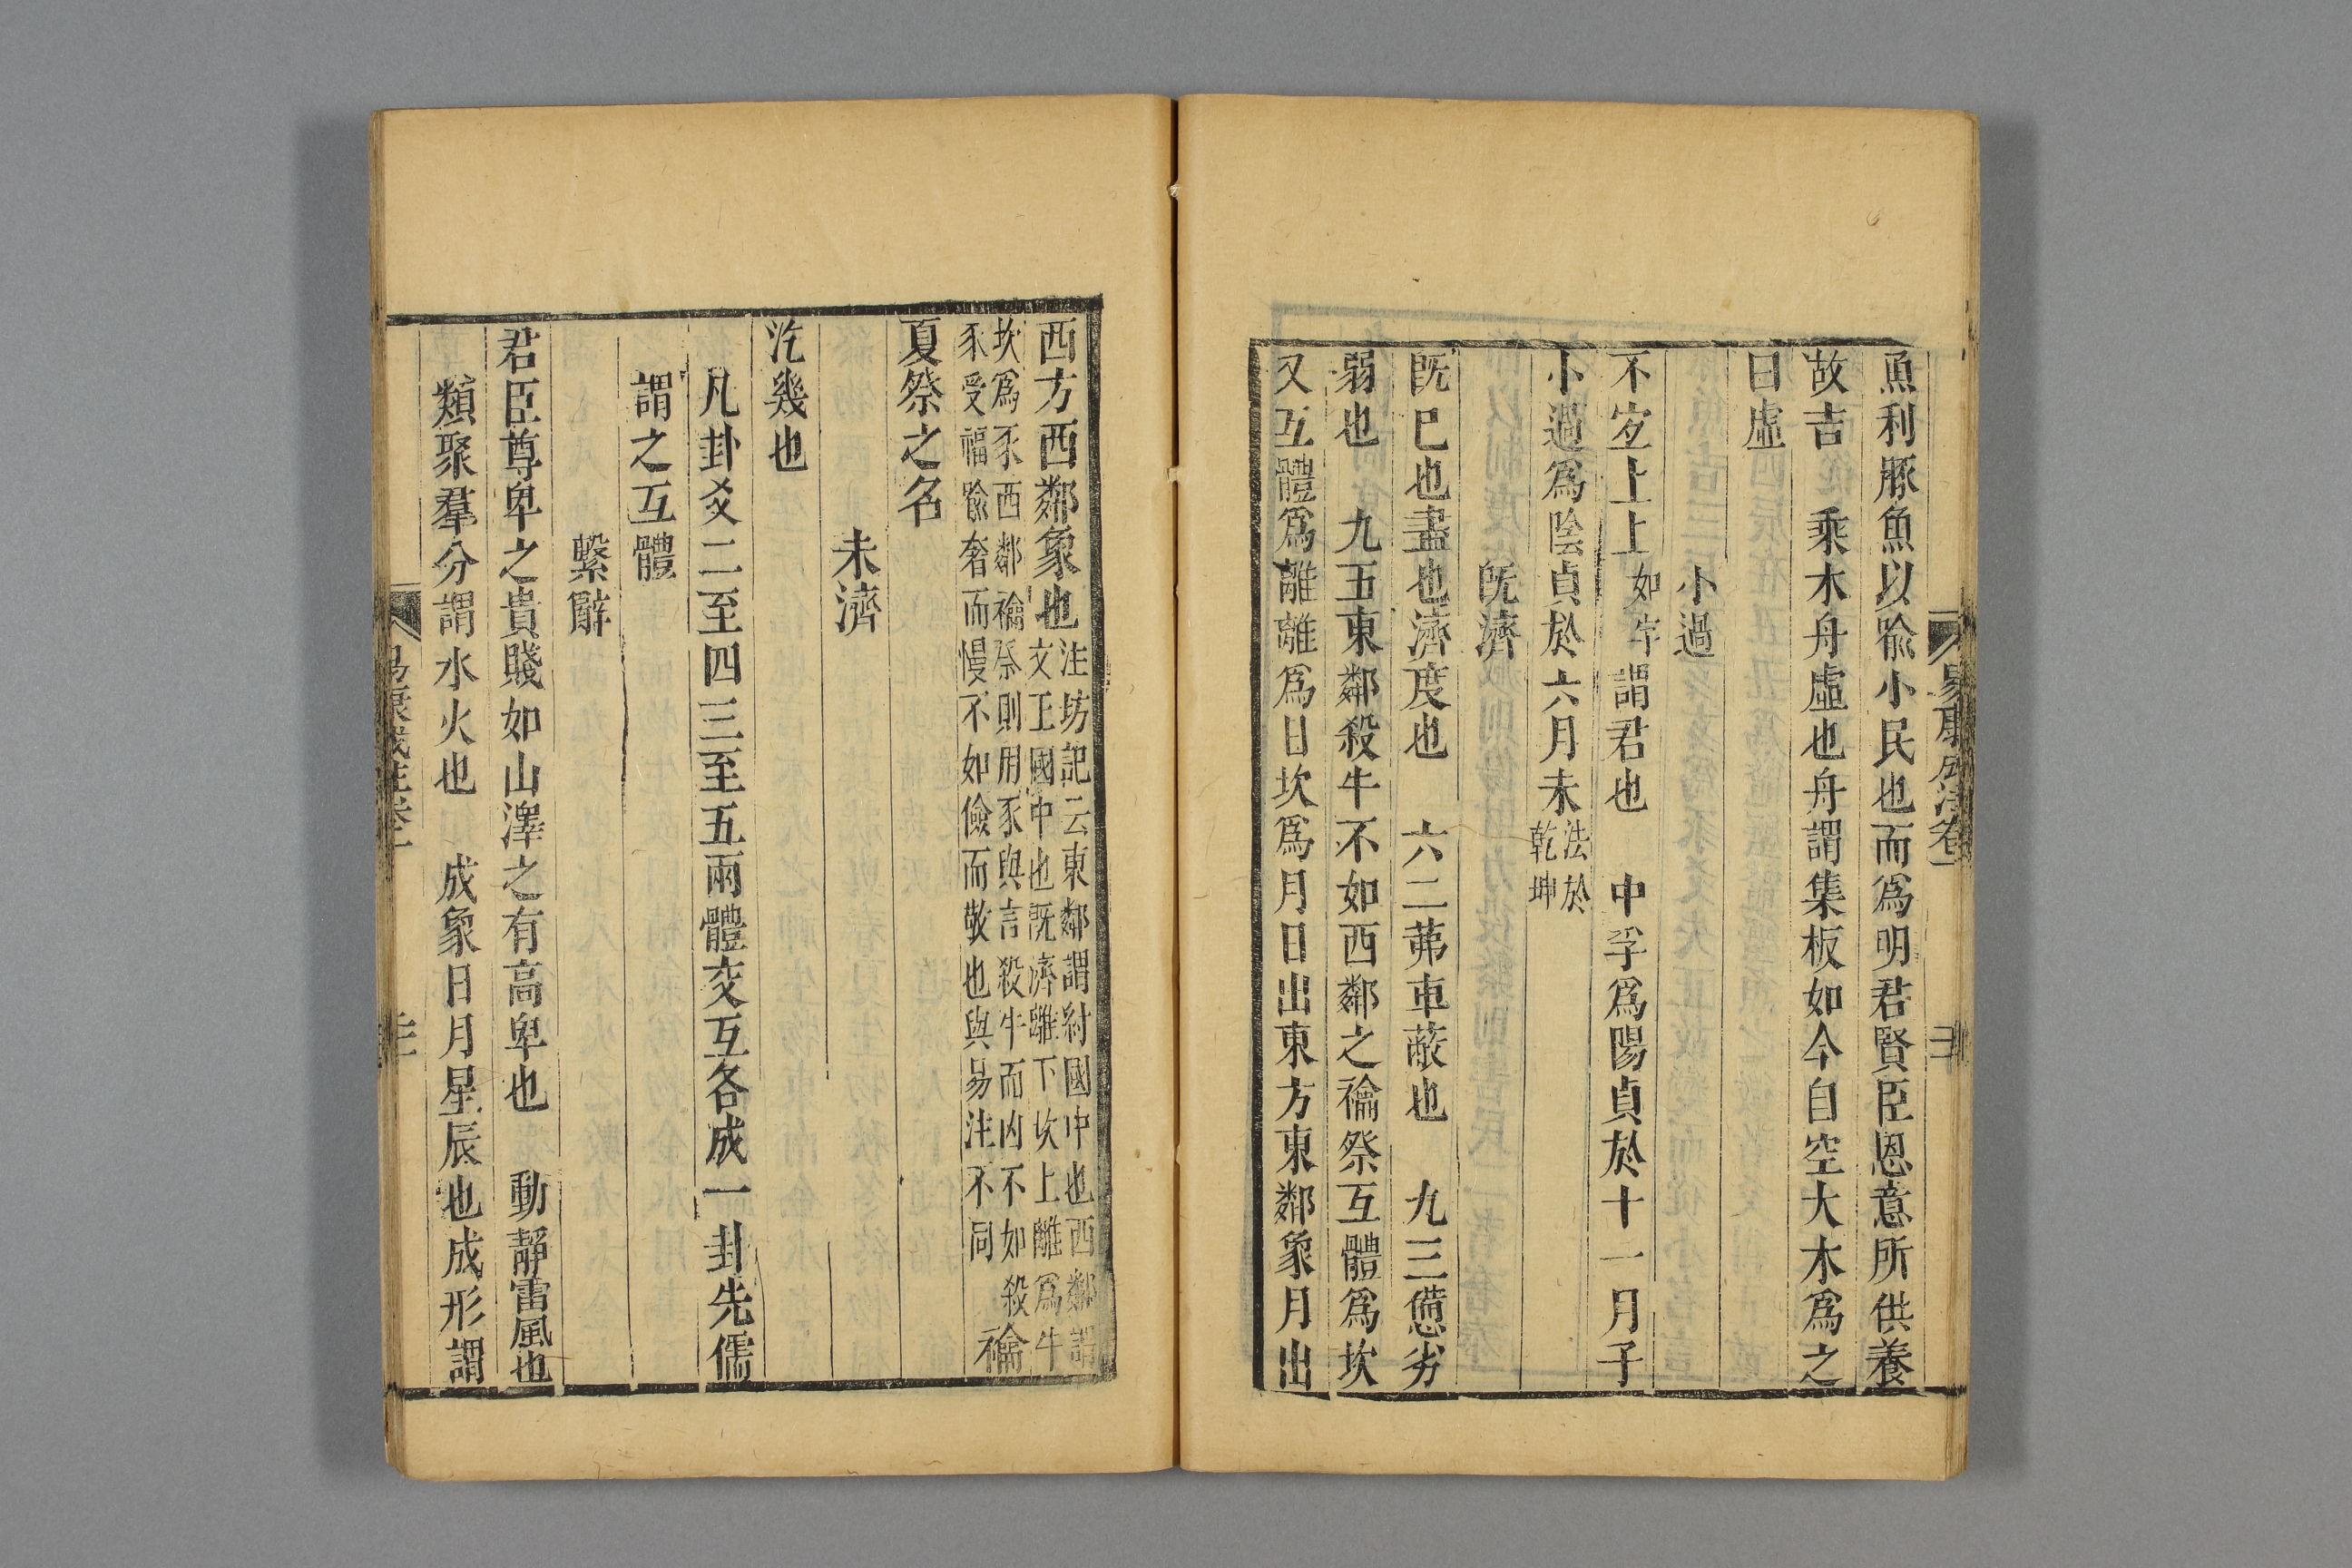 魚利豚魚以喩小民也而爲明君賢臣恩意所供養
故吉　乘木舟虛也舟謂集板如今自空大木爲之
曰虛
小過
不宐上上如字謂君也　中孚爲陽貞於十一月子
小過爲陰貞於六月未法於乾坤
旣濟
旣已也盡也濟度也　六二茀車蔽也　九三憊劣
弱也　九五東鄰殺牛不如西鄰之禴祭互體爲坎
又互體爲離離爲日坎爲月日出東方東鄰象月出
西方西鄰象也注坊記云東鄰謂紂國中也西鄰謂
文王國中也旣濟離下坎上離爲牛
坎爲豕西鄰禴祭則用豕與言殺牛而凶不如殺
豕受福喩奢而慢不如儉而敬也與易注不同　禴
夏祭之名
未濟
汔幾也
凡卦爻二至四三至五兩體交互各成一卦先儒
謂之互體
繫辭
君臣尊卑之貴賤如山澤之有高卑也　動靜雷風也
類聚羣分謂水火也　成象日月星辰也成形謂